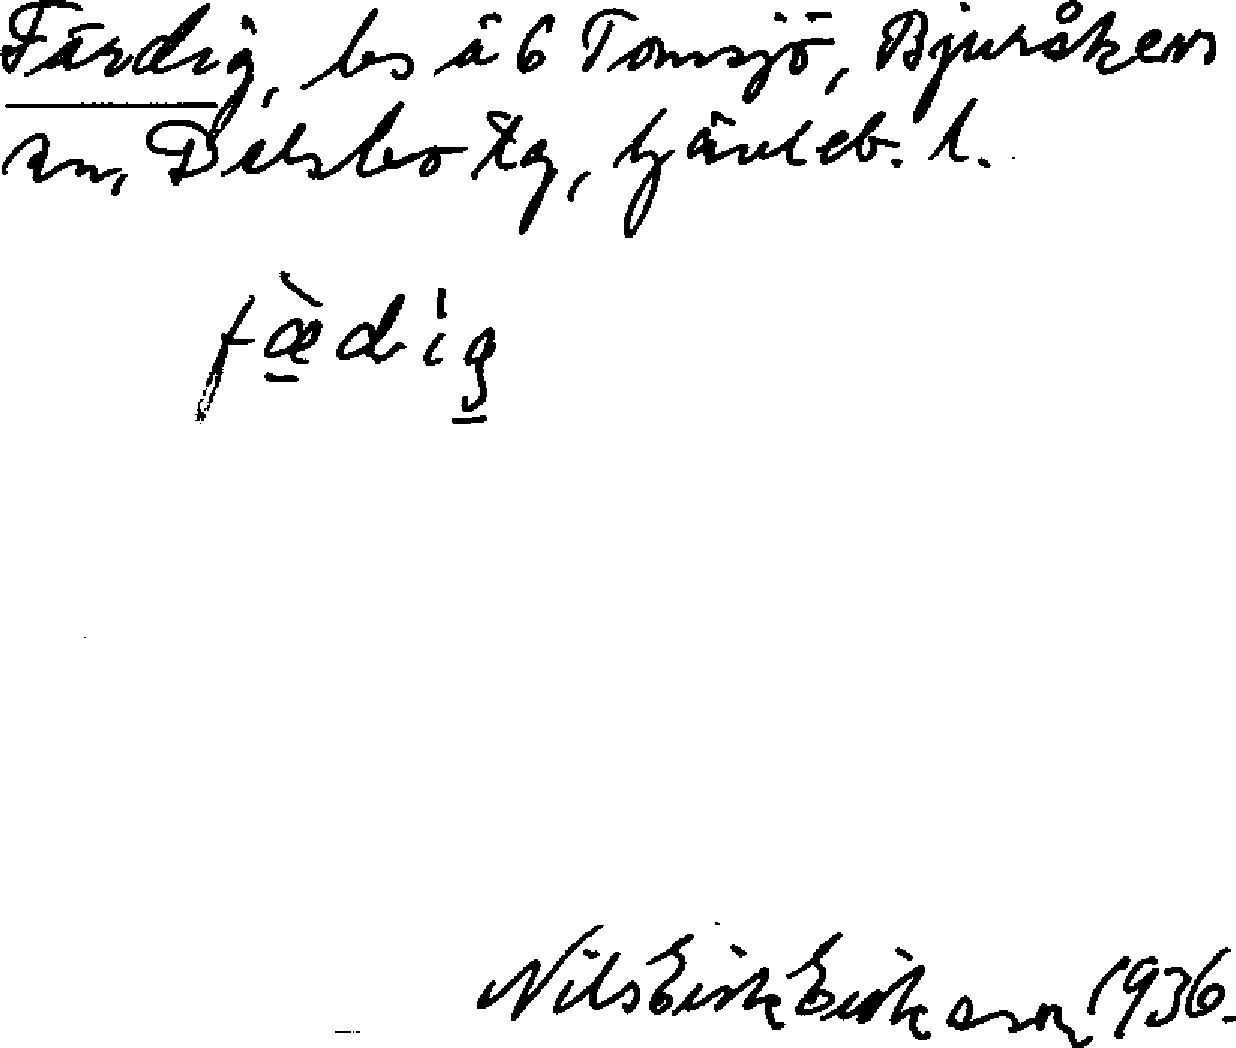 Färdig, bs å 6 Tomsjö, Bjuråkers
sn, Delsbo tg, Gävleb. l.
fæ̀dig
Nils Eirik Eiriksson 1936.